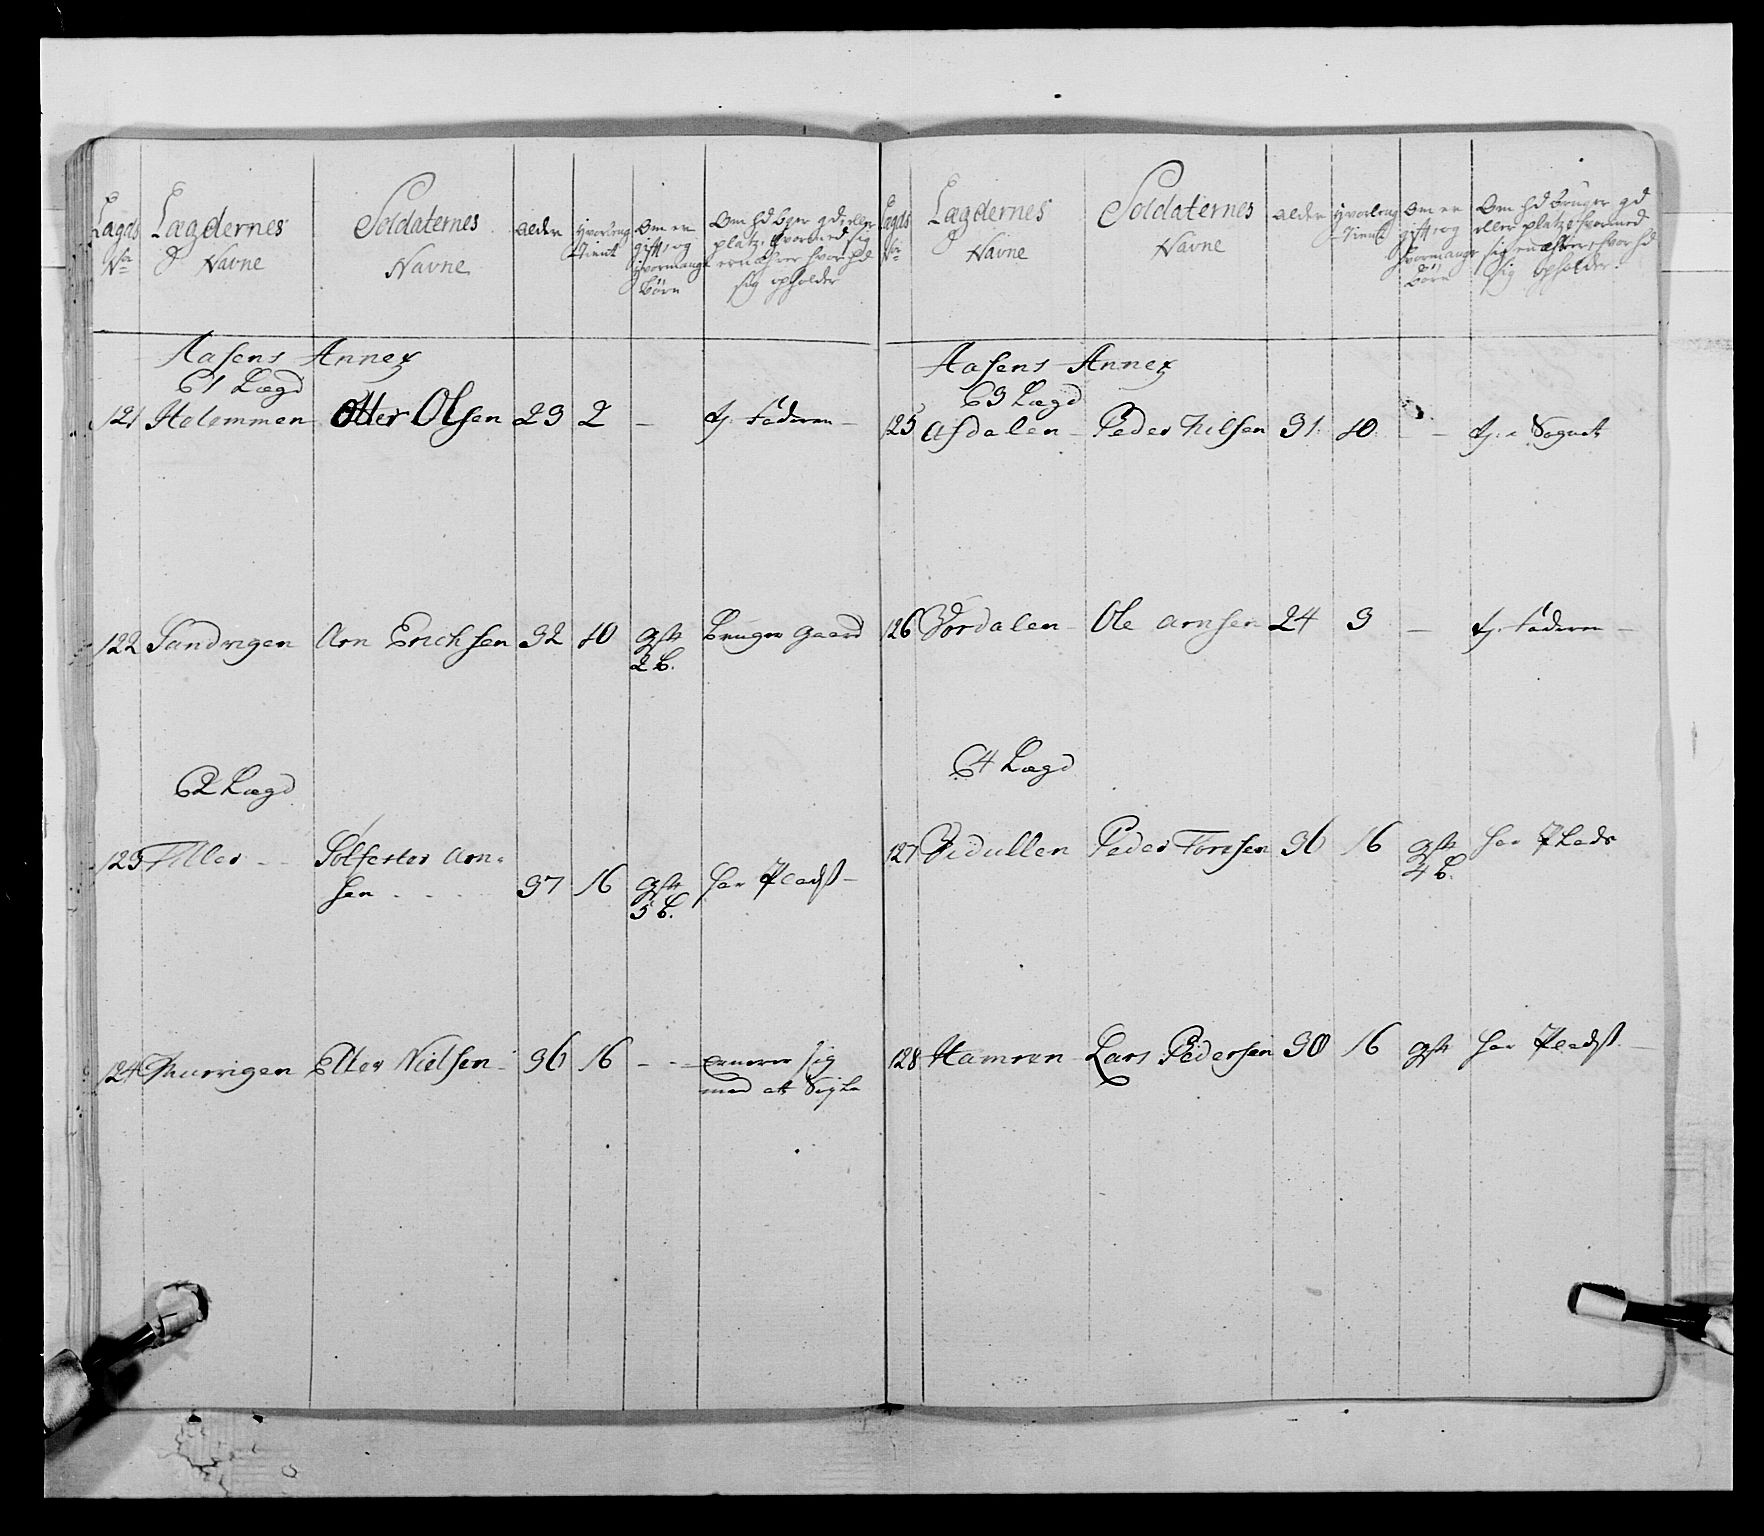 Lægds No
Lægdernes Navne
Soldaternes Navne
alder
Hvorleng tient
Om er gift, og hvormange børn
Om hd bger gd eller platz, hvormed sig ernæhrer hvor hd sig opholder
Aasens Annex
61 Lægd
121 Holommen Otter Olsen 23 2 – tj. Faderen –
122 Sandvigen Arn Erichsen 32 10 gift 2 b. bruger gaard
62 Lægd
123 Filler Solfester Arn-
sen 37 16 gift 5 b. har Pladst –
124 Elter Nielsen 36 16 – ernerer sig
med att Sigle
Lægds No
Lægdernes Navne
Soldaternes Navne
alder
Hvorleng tient
Om er gift, og hvormange børn
Om hd bruger gd eller platz, hvormed sig ernæhrer, hvor hd sig opholder
Aasens Annex
63 Lægd
125 Asdalen Peder Nilsen 31 10 – tj. i Sognet
126 Vordalen Ole Arnsen 24 3 – tj. Faderen –
64 Lægd
127 Vedullen Peder Toresen 36 16 gift 4 b. har Plads
128 Hamren Lars Pedersen 30 16 gift har Pladst –